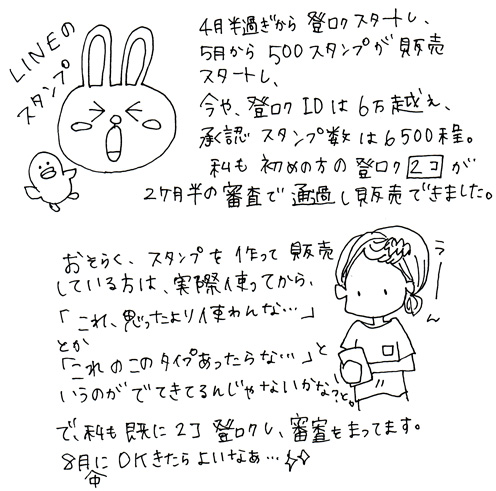 LINEの
スタンプ
4月半過ぎから 登ロクスタートし、
5月から 500スタンプが販売
スタートし、
今や、登ロク IDは6万越え、
承認 スタンプ数は6500程。
私も 初めの方の登ロク 2コ が
2ヶ月半の審査で 通過し販売できました。
おそらく、スタンプを 作って 販売
している方は、実際使ってから、
「これ、思ったより使わんな…」
とか
「これのこのタイプあったらな…」と
いうのが でてきてるんじゃないかな?と。
ラーーん
で、私も 既に 2コ 登ロクし、審査をまってます。
8月中に OKきたらよいなぁ…